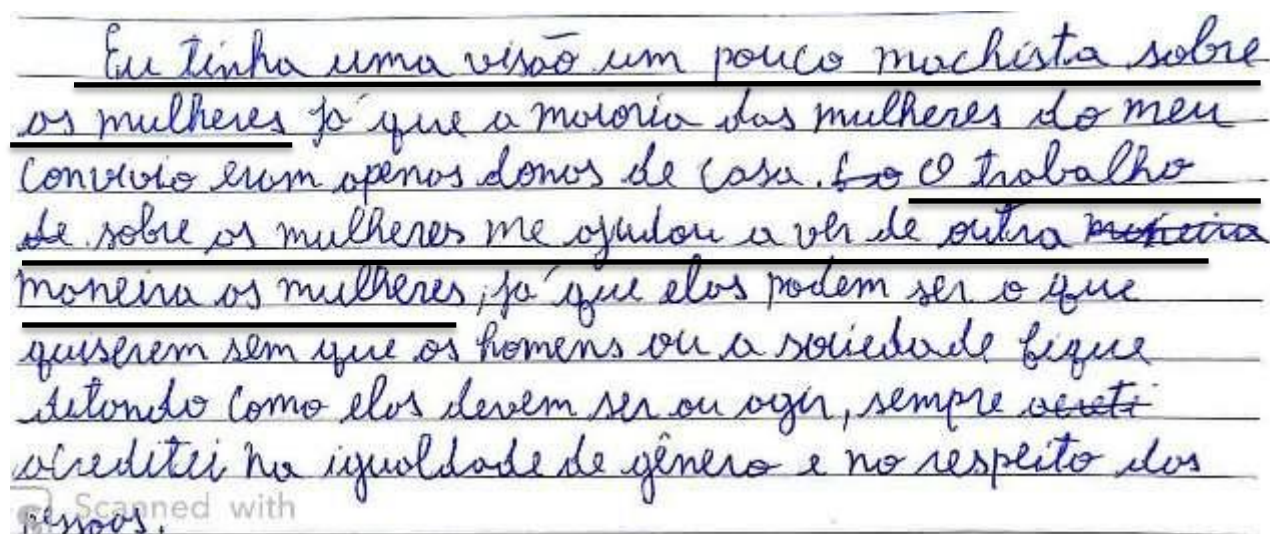 Eu tinha uma visão um pouco machista sobre
as mulheres já que a maioria das mulheres do meu
convívio eram apenas donas de casa. O trabalho
de sobre as mulheres me ajudou a ver de outra maneira
maneira as mulheres, já que elas podem ser o que
quiserem sem que os homens ou a sociedade fique
ditando como elas devem ser ou agir, sempre
acreditei na igualdade de gênero e no respeito das
pessoas.
Scanned with